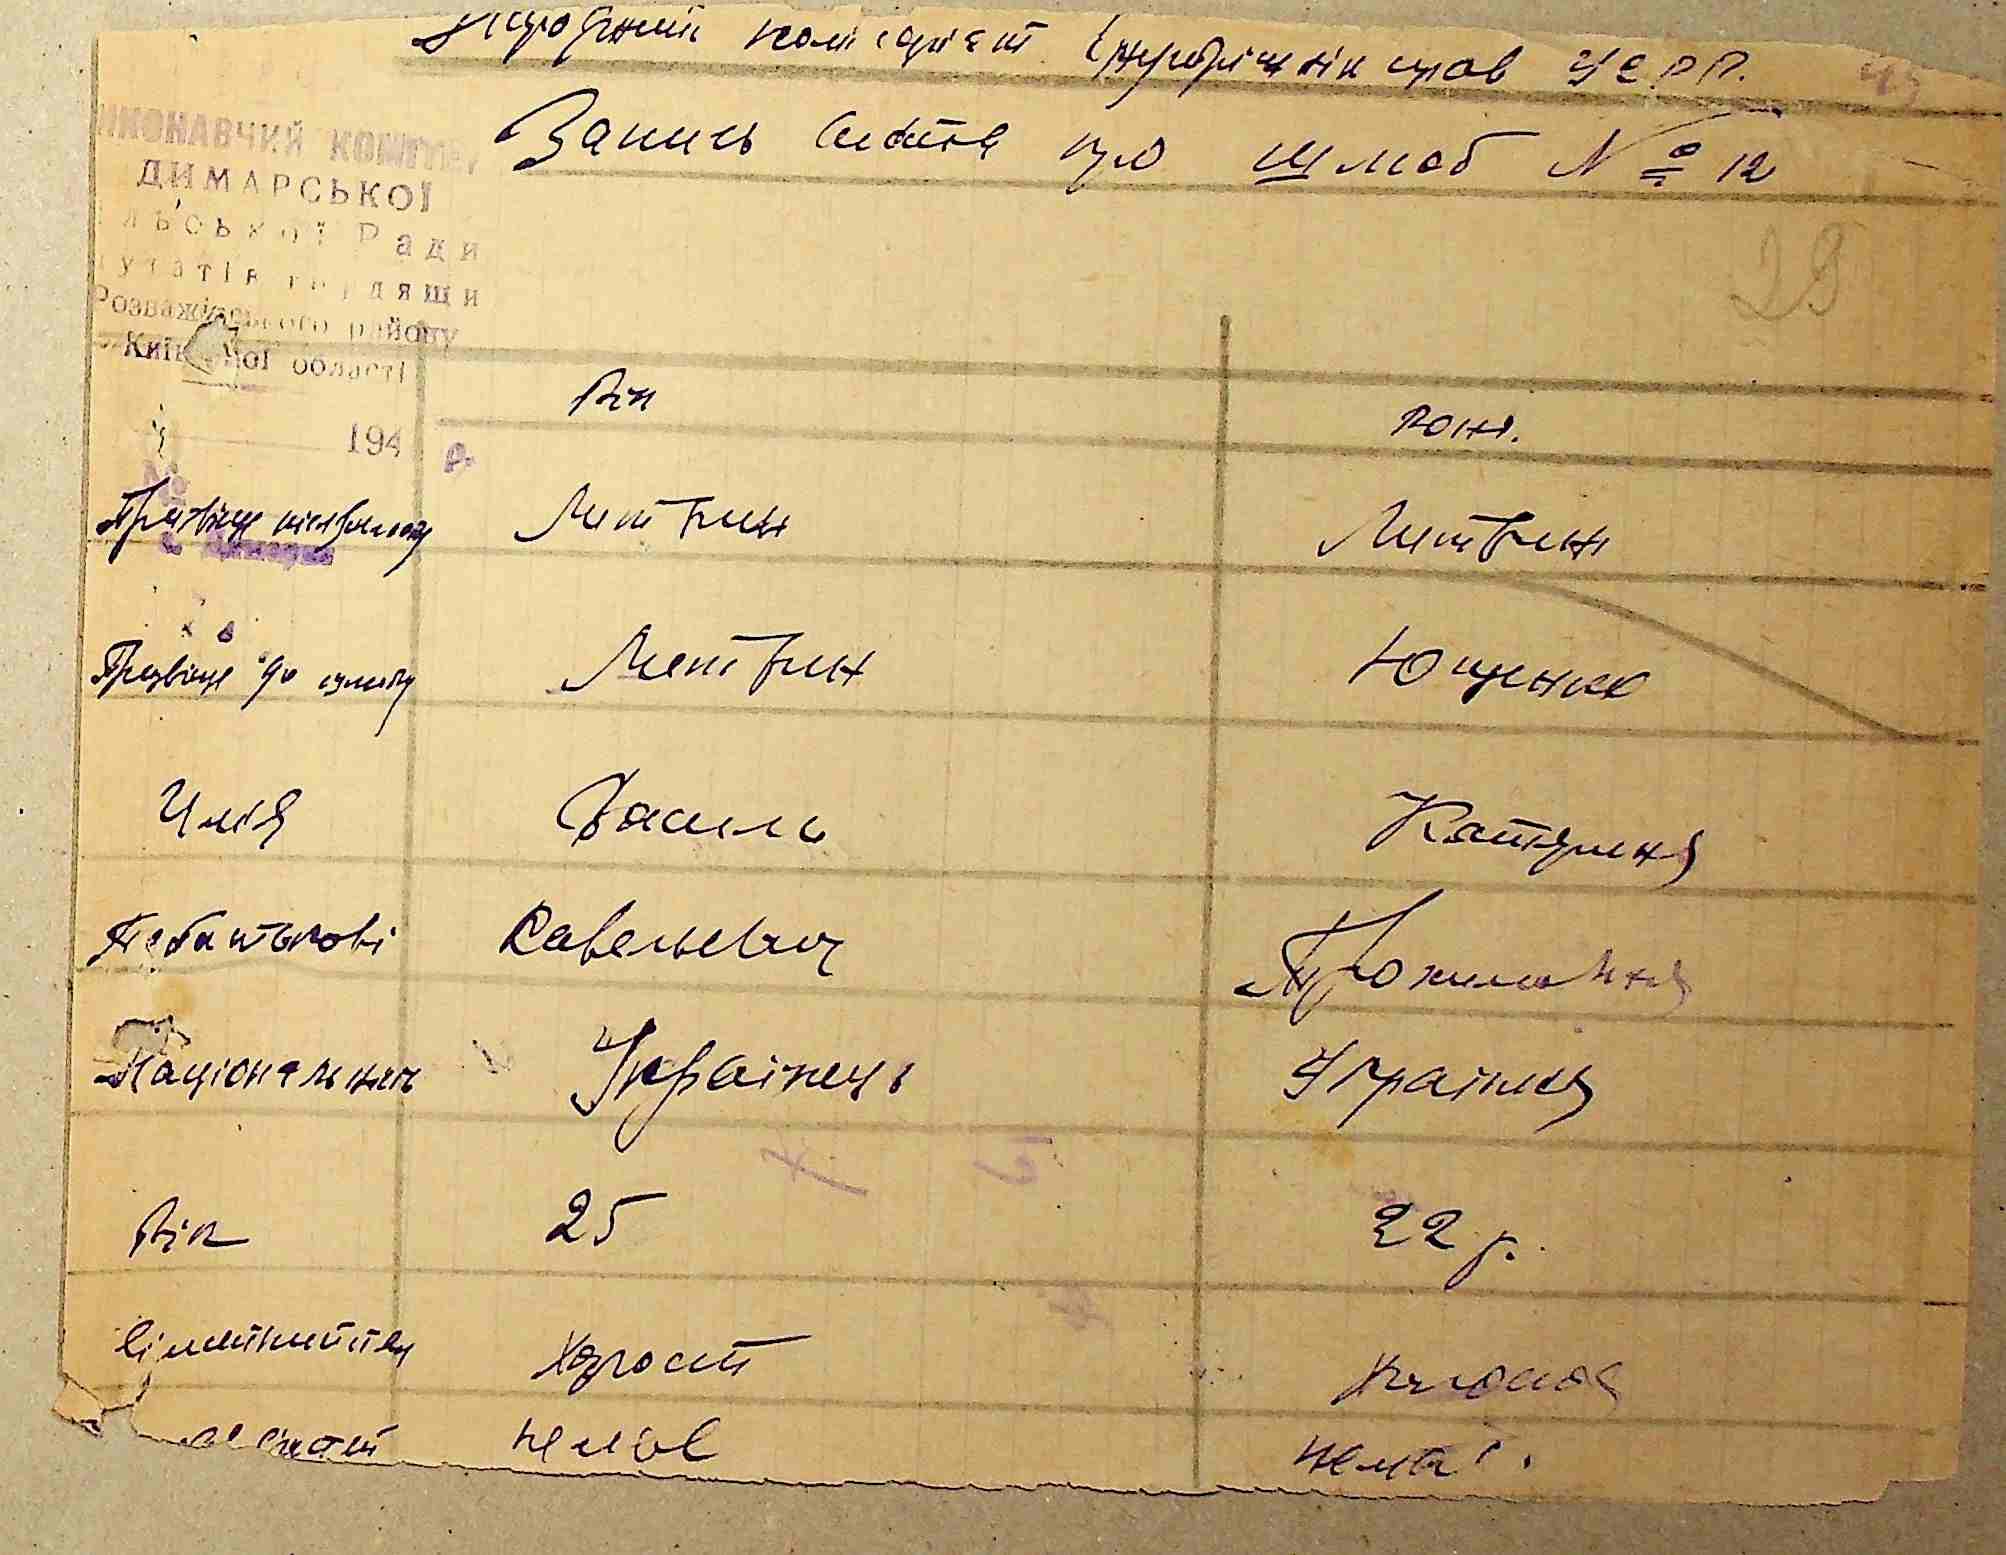 Народний комісаріят Внутрішніх справ УСРР.
Запись актів про шлюб № 12
ИКОНАВЧИЙ КОМІТЕТ
ДИМАРСЬКОЇ
льської Ради
путатів трудящи
Розважівського району
Київської області
29
194 р.
Він Вона.
№
Призвіще після шлюбу Литвин Литвин
Призвіще до шлюбу Литвин Ющенко
Имія Василь Катерина
Побатькові Савельевич
Національність Українець Українка
Вік 25 22 р.
Сімейний стан Холост
немає немає.